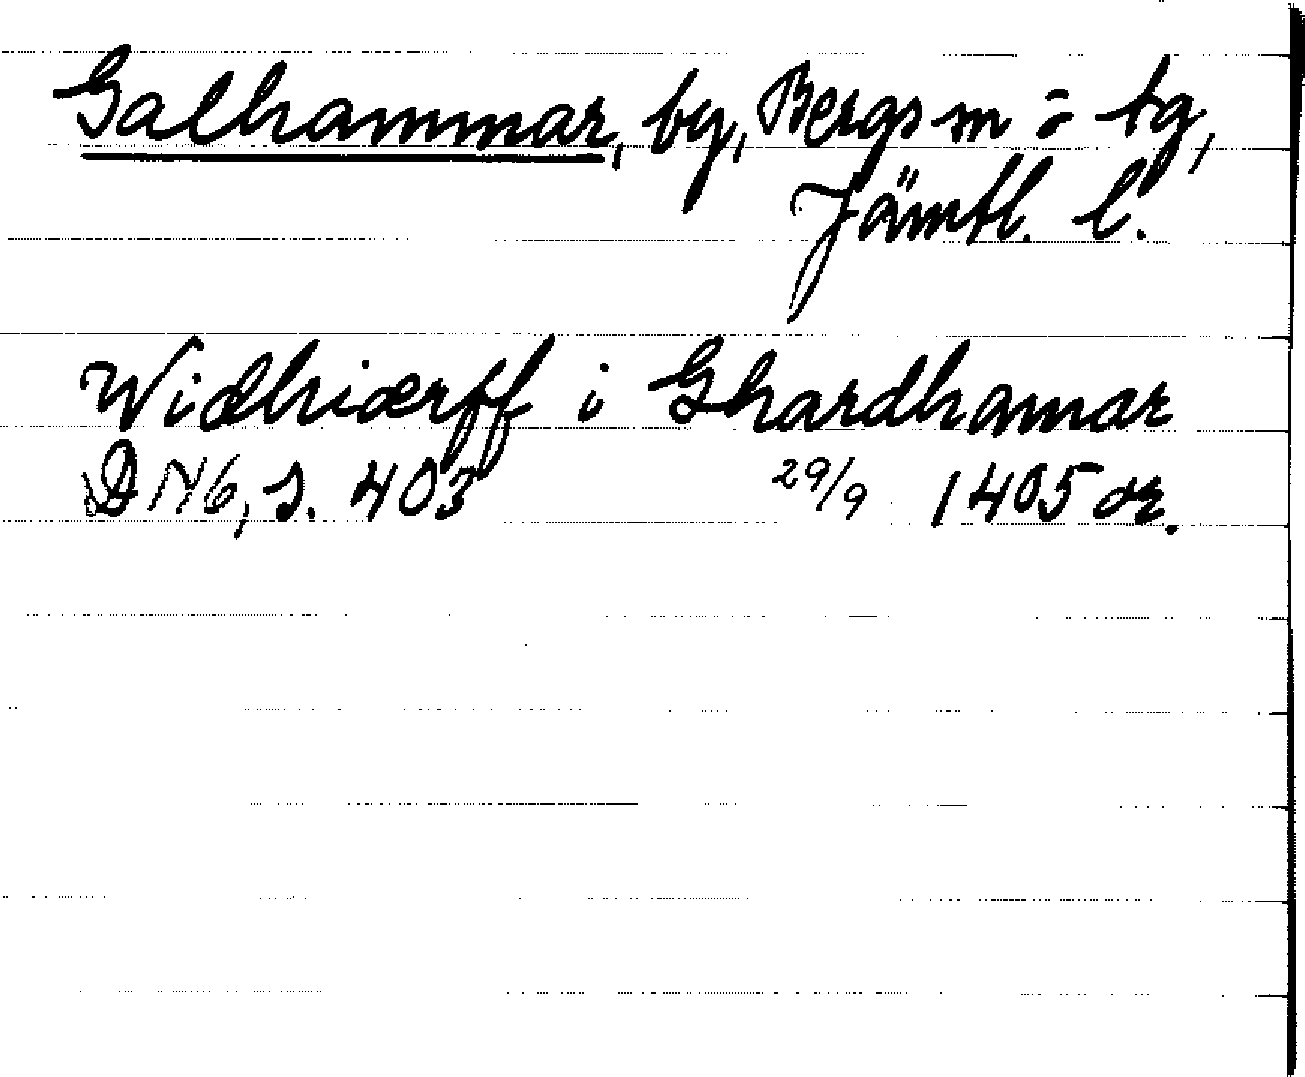 Galhammar, by, Bergs sn o tg,
Jämtl. l.
Widhiærff i Ghardhamar
DN 6, s. 403 29/9 1405 or.